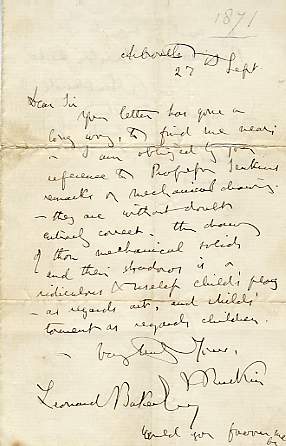 1871
27th Sept.
Dear Sir
Your letter has gone a
long way, to find me
I am obliged by your
reference to Professor Jenkins
remarks on mechanical drawing
- they are without doubt
entirely correct - the drawing
of those mechanical solids
and their shadows is a
ridiculous & useless child's play
- as regards art, and childs'
torment as regards children.
- Very truly Yours,
J Ruskin
Leonard
would you favour me
by